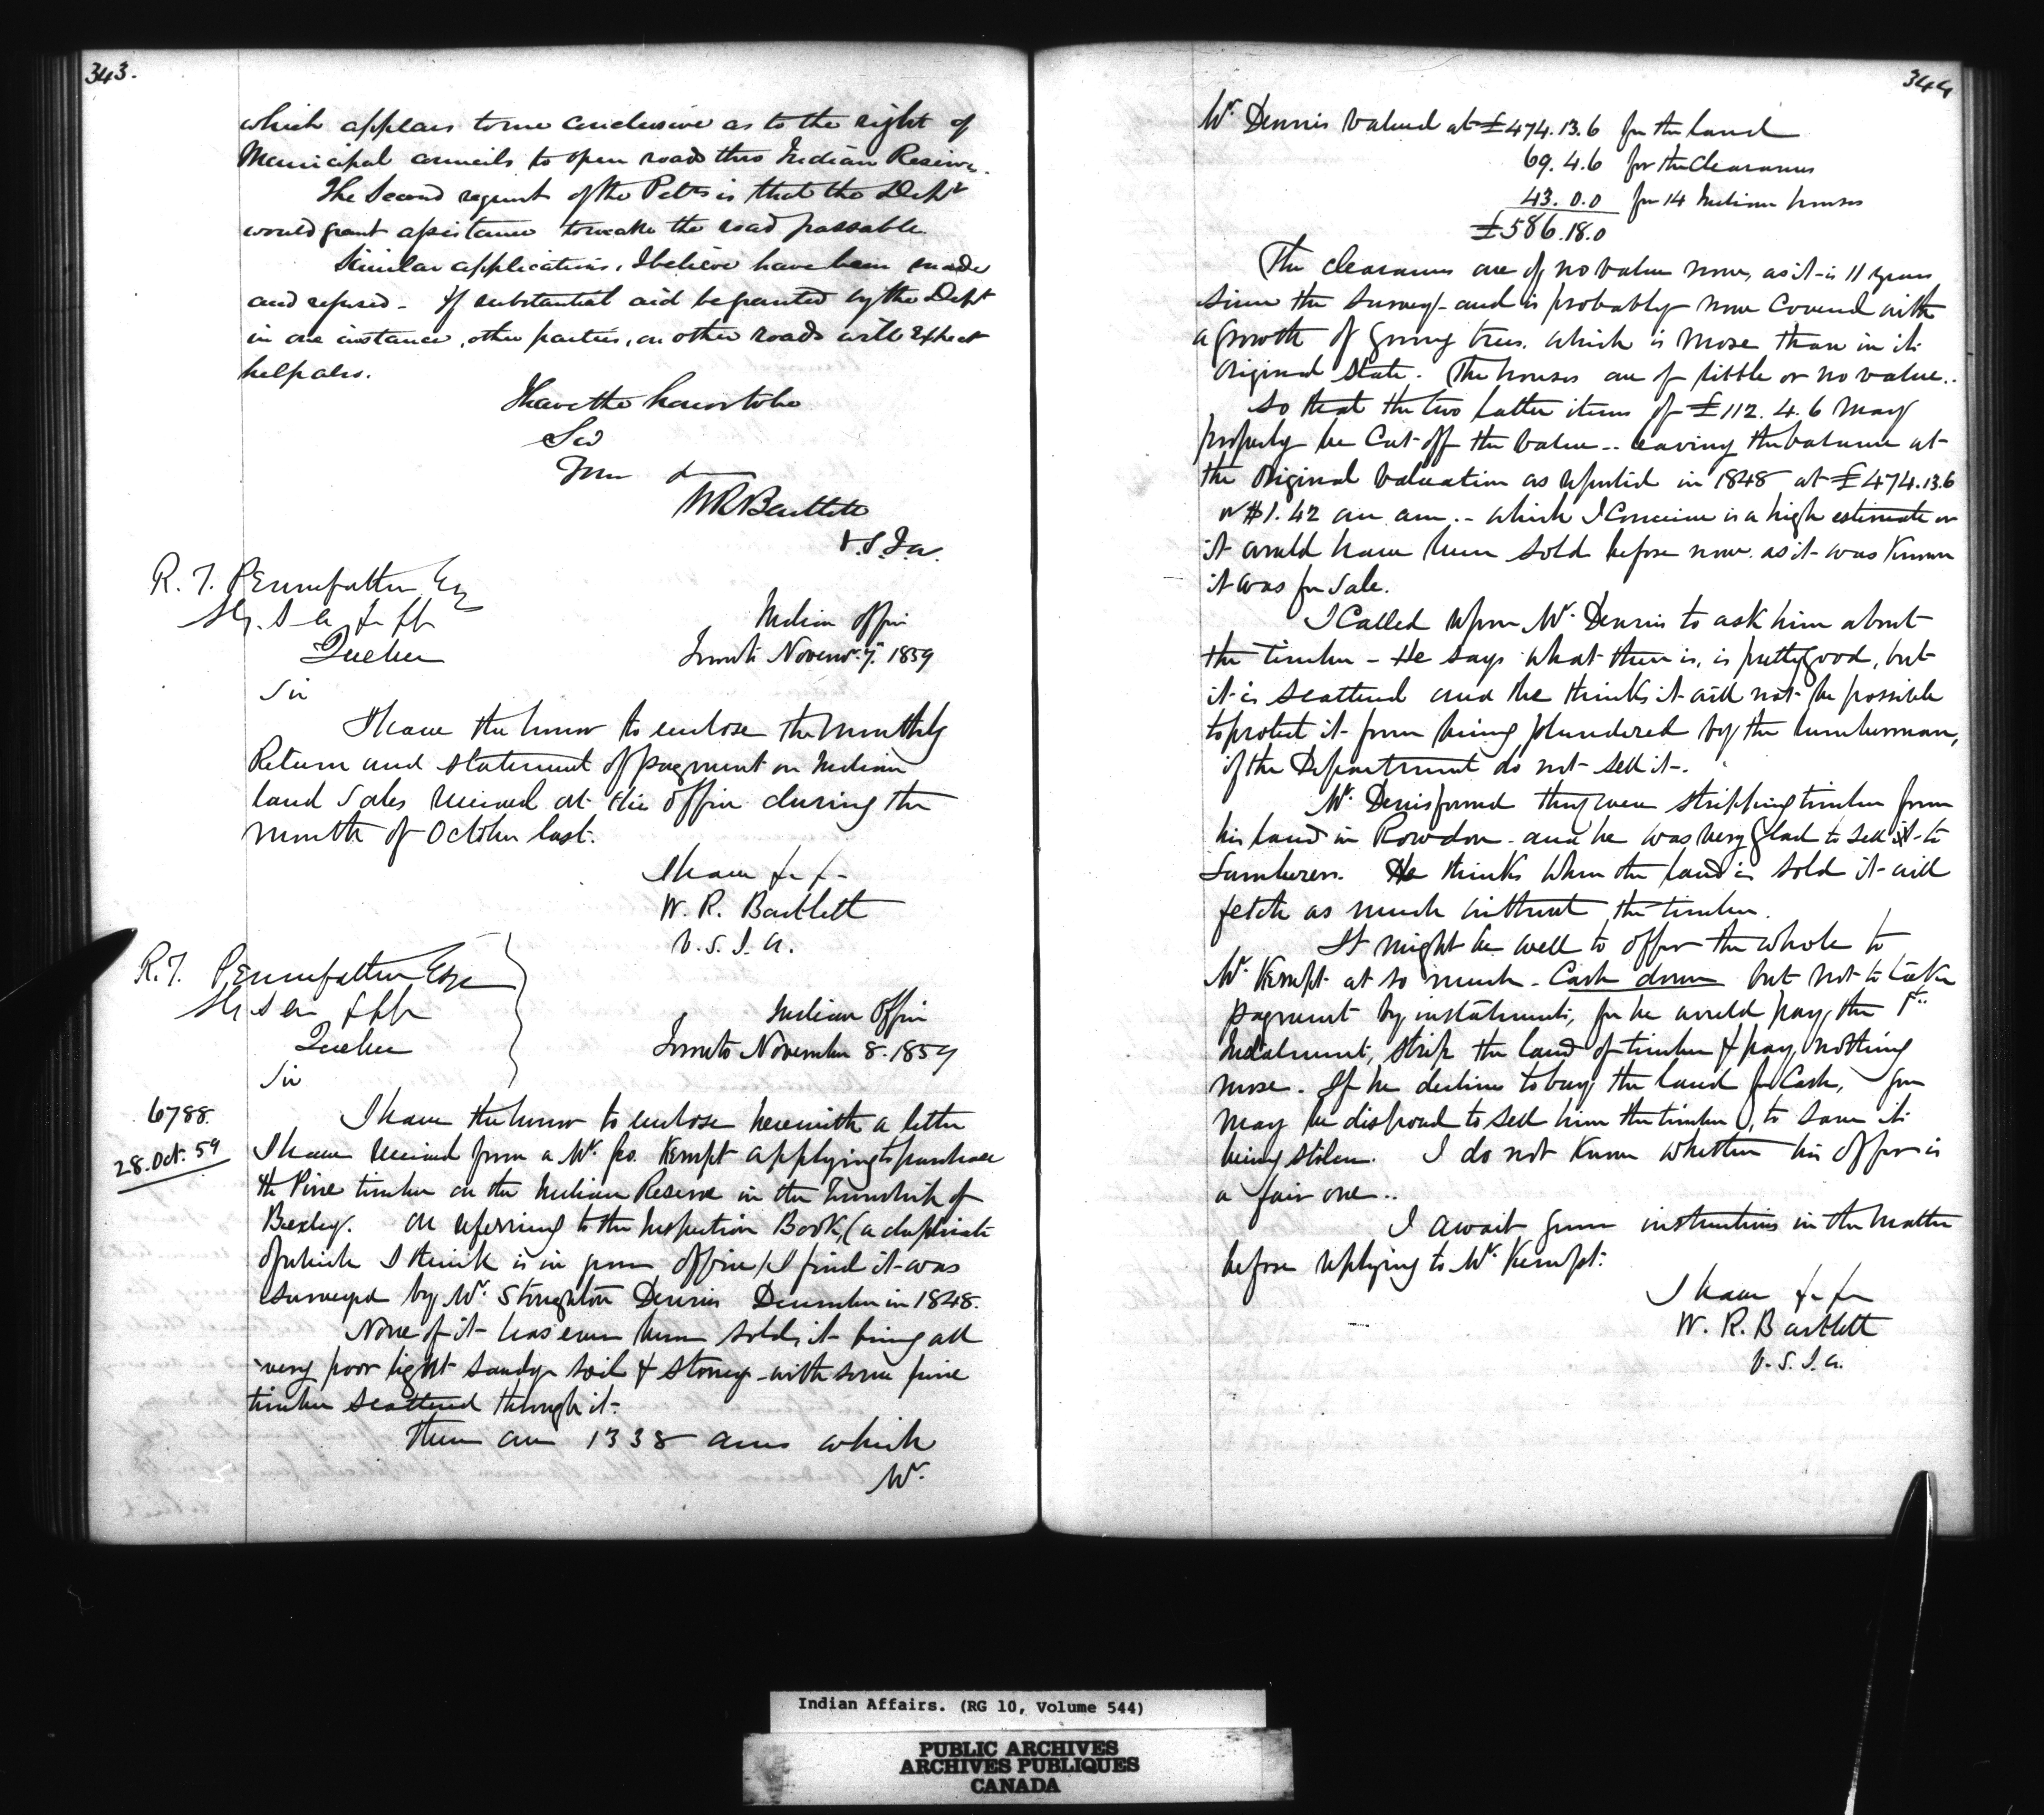 343.
which appears to me conclusive as to the right of
Municipal councils to open roads thro Indian Reserves.
The Second request of the Petrs is that the Dept
would grant assistance to make the road passable.
Similar applications, I believe have been made
and refused - If substantial aid be granted by the Dept
in one instance, other parties, on other roads will expect
help also.
I have the honor to be
Sir
Your &
W R Bartlett
V.S.I.A.
R. T. Pennefather Esq
Quebec
Indian Office
Toronto Novemr. 7. 1859
Sir
I have the honor to enclose the monthly
Return and statement of payment on Indian
land Sales received at this office during the
month of October last.
I have &c &c
W. R. Bartlett
V. S. I. A.
R. T. Pennefather Esqr
Quebec
Indian Office
Toronto November 8. 1859
Sir
6788.
28. Oct. 59
I have the honor to enclose herewith a letter
I have received from a Mr. Geo. Kempt applying to purchase
the Pine timber on the Indian Reserve in the Township of
Bexley. On referring to the Inspection Book, (a duplicate
of which I think is in your office) I find it was
surveyed by Mr. Stoughton Dennis December in 1848.
None of it has ever been sold, it being all
very poor light sandy soil & stoney with some pine
timber scattered through it.
There are 1338 acres which
Mr.
344
Mr. Dennis valued at £474.13.6 for the land
69. 4. 6 for the Clearances
43. 0. 0 for 14 Indian houses
£586.18.0
The clearances are of no value now, as it is 11 years
since the survey - and is probably now covered with
a growth of young trees. which is worse than in its
original state. The houses are of little or no value..
So that the two latter items of £112. 4. 6 may
properly be cut off the value - leaving the balance at
the original valuation as reported in 1848 at £474.13.6
or $1.42 an acre. - which I conceive is a high estimate or
it would have been sold before now. as it was known
it was for sale.
I called upon Mr. Dennis to ask him about
the timber - He says what there is, is pretty good, but
it is scattered and he thinks it will not be possible
to protect it from being plundered by the lumberman,
if the Department do not sell it -.
Mr. Dennis found they were stripping timber from
his land in Rowdon - and he was very glad to sell it to
Lumberers. He thinks when the land is sold it will
fetch as much without the timber.
It might be well to offer the whole to
Mr. Kempt at so much - Cash down but not to take
payment by instalments, for he would pay the 1st
Instalment, strip the land of timber & pay nothing
more. If he decline to buy the land for Cash, you
may be disposed to sell him the timber, to save its
being stolen. I do not know whether his offer is
a fair one..
I await your instructions in the matter
before replying to Mr. Kempt.
I have &c &c
W. R. Bartlett
V. S. I. A.
Indian Affairs. (RG 10, Volume 544)
PUBLIC ARCHIVES
ARCHIVES PUBLIQUES
CANADA